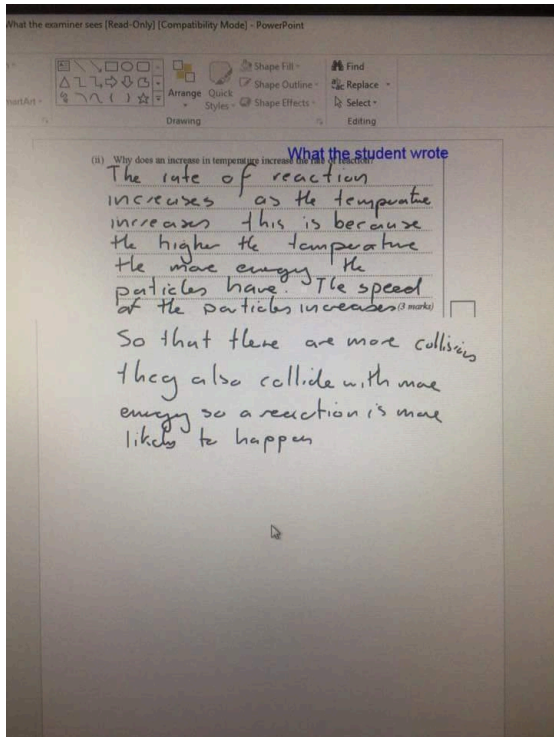 What the examiner sees [Read-Only] [Compatibility Mode] - PowerPoint
Shape Fill
Find
Shape Outline
Replace
Arrange
Quick
SmartArt
Styles
Shape Effects
Select
Drawing
Editing
What the student wrote
(ii) Why does an increase in temperature increase the rate of reaction?
The rate of reaction
increases as the temperature
increases this is because
the higher the temperature
the more energy the
particles have. The speed
of the particles increases (3 marks)
So that there are more collisions
they also collide with more
energy so a reaction is more
likely to happen